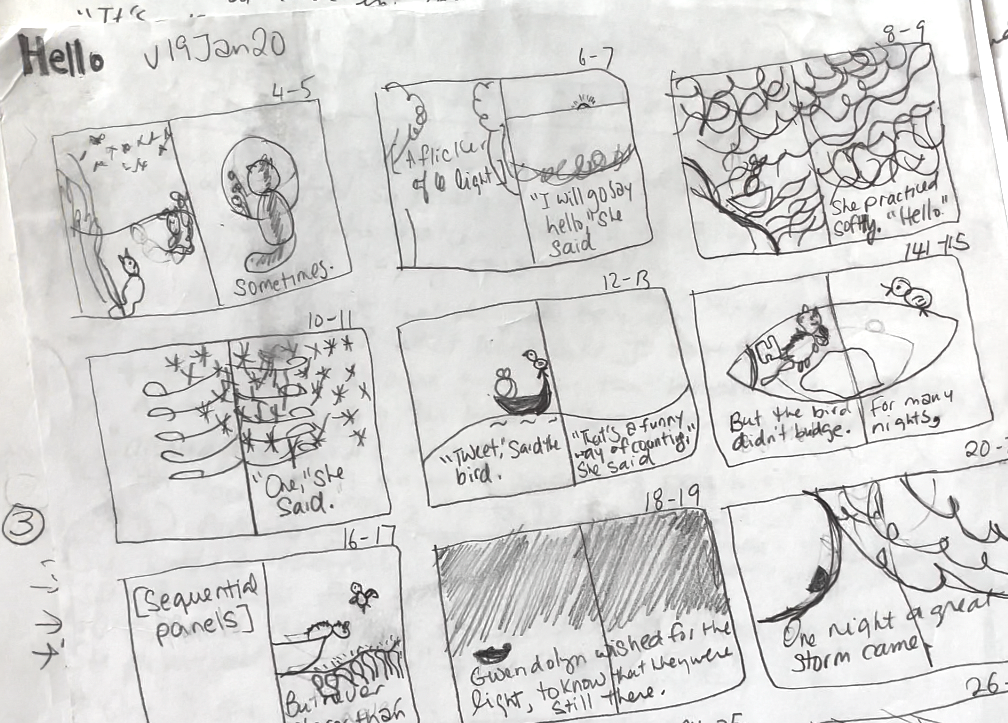 "It's
Hello v19Jan20
4-5
Sometimes.
6-7
[A flicker
of light]
"I will go say
hello," she
said
8-9
She practiced
softly. "Hello."
10-11
"One," she
said.
12-13
"Tweet," said the
bird.
"That's a funny
way of counting,"
she said
14-15
H
But the bird
didn't budge.
For many
nights,
16-17
[Sequential
panels]
But never
18-19
Gwendolyn wished for the
light, to know that they were
still there.
20-
One night a great
storm came.
3
26-